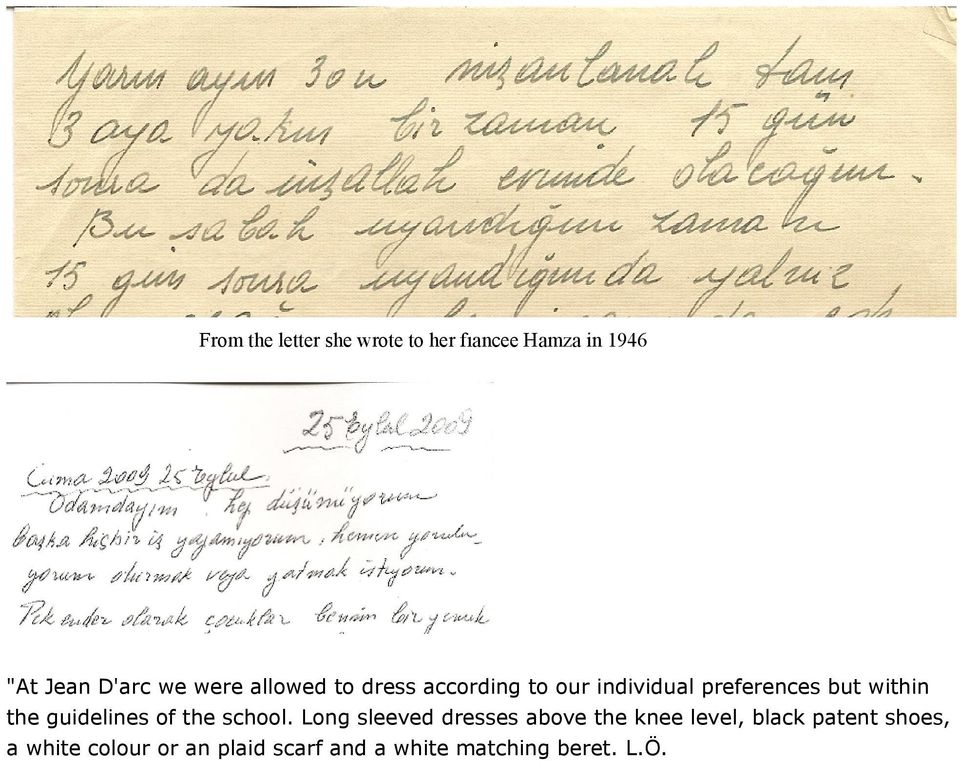 Yarın ayın 30u nişanlanalı tam
3 aya yakın bir zaman 15 gün
sonra da inşallah evimde olacağım.
Bu sabah uyandığım zaman
15 gün sonra uyandığımda yalnız
From the letter she wrote to her fiancee Hamza in 1946
25 Eylül 2009
Cuma 2009 25 Eylul.
Odamdayım. hep düşünüyorum
başka hiçbir iş yapamıyorum, hemen yorulu-
yorum oturmak veya yatmak istiyorum.
Pek ender olarak çocuklar benim bir yemek
"At Jean D'arc we were allowed to dress according to our individual preferences but within
the guidelines of the school. Long sleeved dresses above the knee level, black patent shoes,
a white colour or an plaid scarf and a white matching beret. L.Ö.